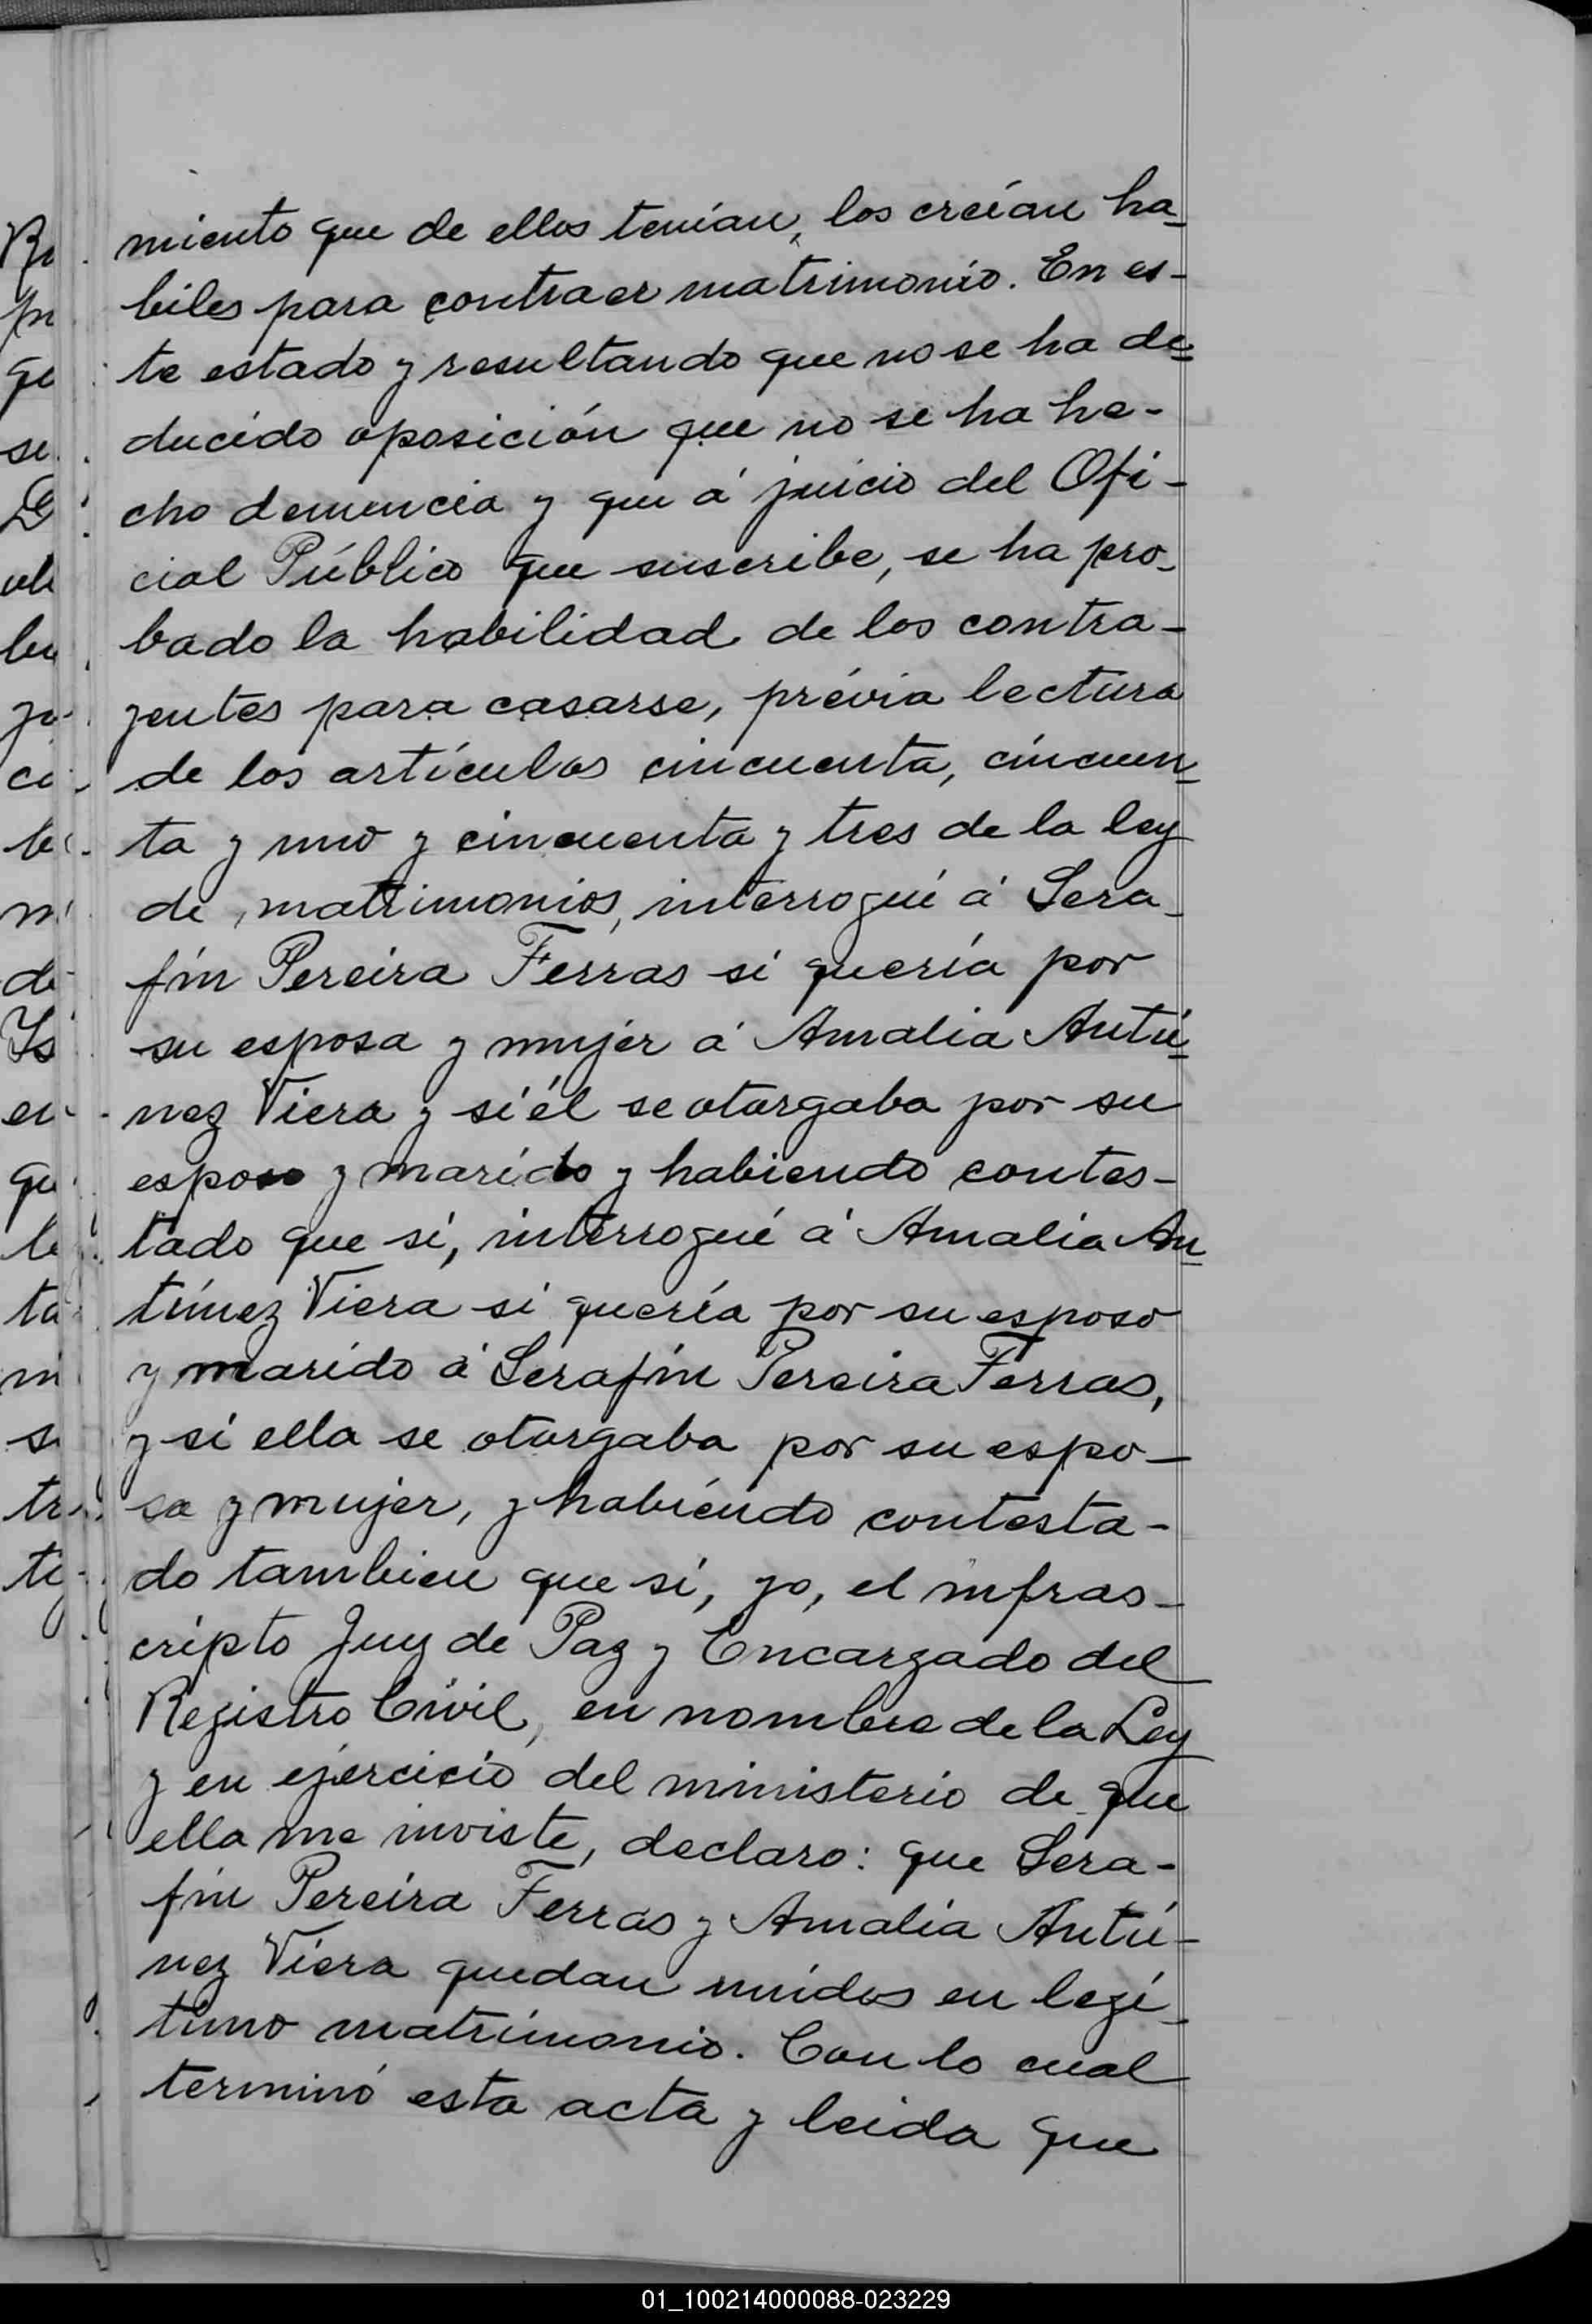 miento que de ellos tenían, los creían ha-
biles para contraer matrimonio. En es-
te estado y resultando que no se ha de-
ducido oposición que no se ha he-
cho denuncia y que á juicio del Ofi-
cial Público que suscribe, se ha pro-
bado la habilidad de los contra-
yentes para casarse, prévia lectura
de los artículos cincuenta, cincuen-
ta y uno y cincuenta y tres de la ley
de matrimonios, interrogué á Sera-
fín Pereira Ferras si quería por
su esposa y mujer á Amalia Antú-
nez Viera y si él se otorgaba por su
esposo y marido y habiendo contes-
tado que sí, interrogué á Amalia An-
túnez Viera si quería por su esposo
y marido á Serafín Pereira Ferras,
y si ella se otorgaba por su espo-
sa y mujer, y habiendo contesta-
do tambien que sí, yo, el infras-
cripto Juez de Paz y Encargado del
Registro Civil, en nombre de la Ley
y en ejercicio del ministerio de que
ella me inviste, declaro: que Sera-
fín Pereira Ferras y Amalia Antú-
nez Viera quedan unidos en legí-
timo matrimonio. Con lo cual
terminó esta acta y leida que
01_100214000088-023229